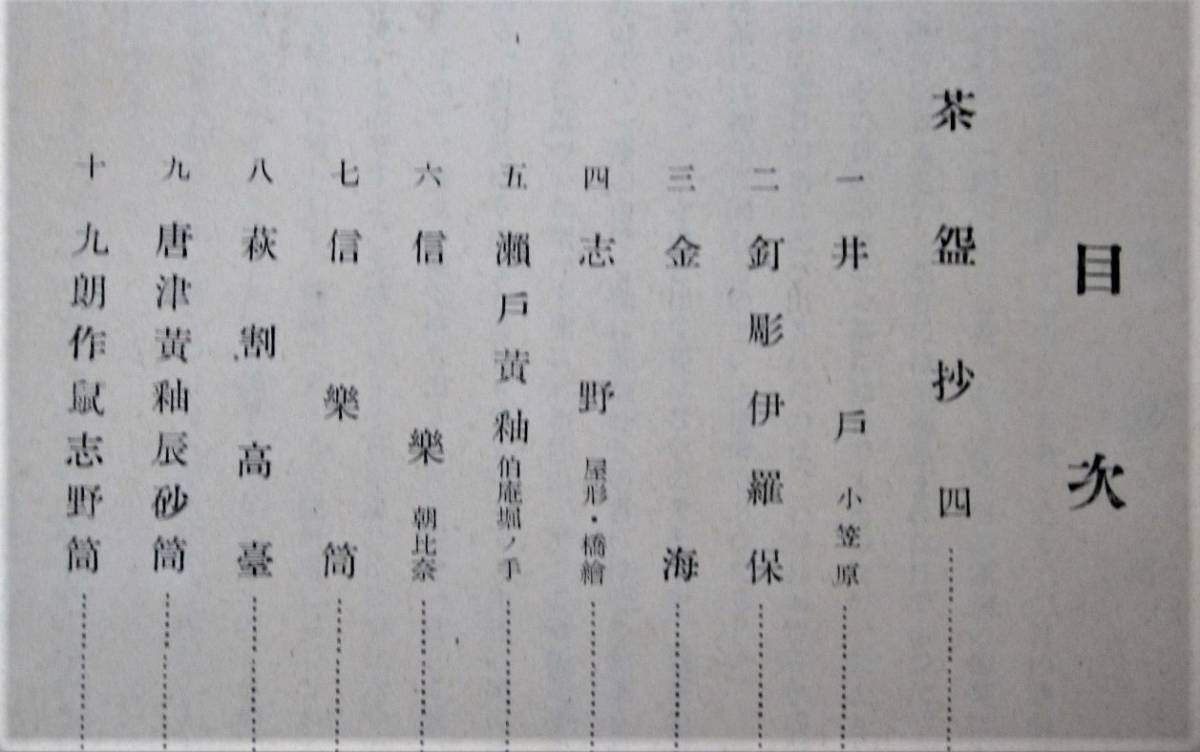 目次
茶盌抄四
一 井戶 小笠原
二 釘彫伊羅保
三 金海
四 志野 屋形・橋繪
五 瀨戶黃釉 伯庵堀ノ手
六 信樂 朝比奈
七 信樂筒
八 萩割高臺
九 唐津黃釉辰砂筒
十 九朗作鼠志野筒